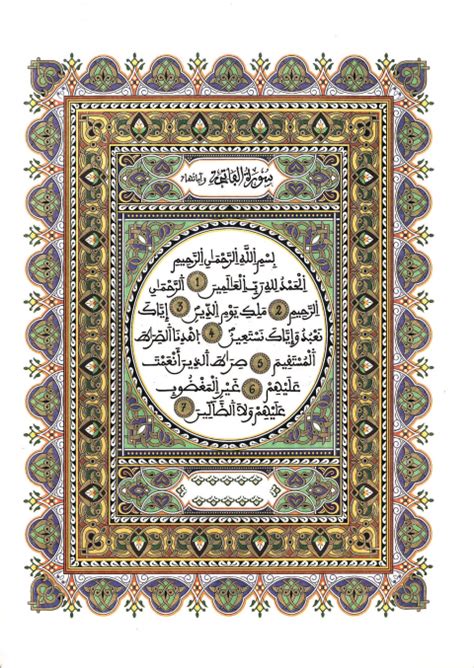 سورة الفاتحة وآياتها 7
بِسْمِ اللَّهِ الرَّحْمَٰنِ الرَّحِيمِ
الْحَمْدُ لِلَّهِ رَبِّ الْعَالَمِينَ 1 الرَّحْمَٰنِ
الرَّحِيمِ 2 مَلِكِ يَوْمِ الدِّينِ 3 إِيَّاكَ
نَعْبُدُ وَإِيَّاكَ نَسْتَعِينُ 4 اهْدِنَا الصِّرَاطَ
الْمُسْتَقِيمَ 5 صِرَاطَ الَّذِينَ أَنْعَمْتَ
عَلَيْهِمْ 6 غَيْرِ الْمَغْضُوبِ
عَلَيْهِمْ وَلَا الضَّالِّينَ 7